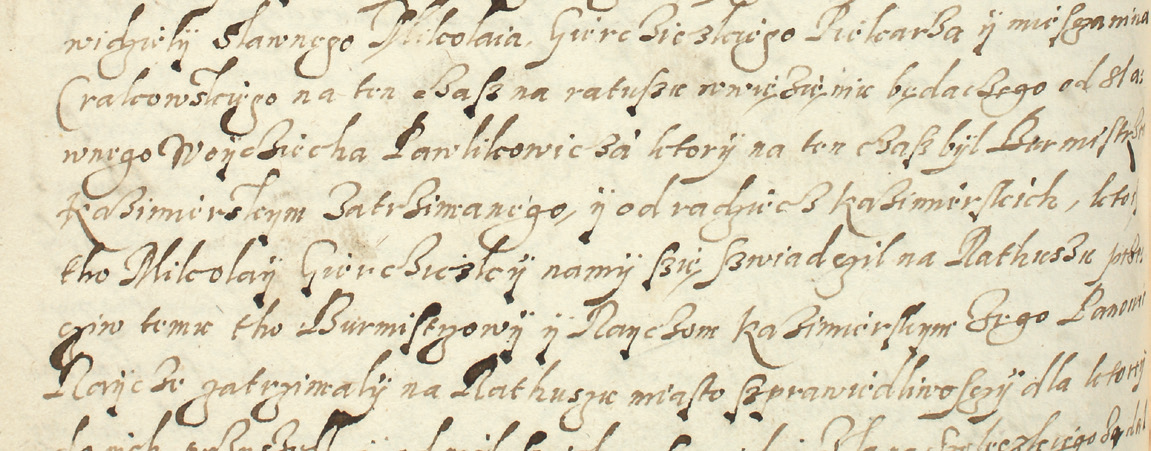 widzieły Sławnego Mikolaia Gierczickiego Piekarza y miesczanina
Cracowskiego na ten czasz na ratuszu wwięzięniu będaczego od Sla
wnego Woyciecha Pawlikowicza ktory na ten czasz był Burmistrze
Kazimierskym zatrzimanego, y od radziecz kazimierskich, ktor
tho Mikolay Gierczicky namy szię szwiadczil na Rathuszu prze
cziw temu tho Burmistrzowy y Rayczom Kazimierskym ze go Panow
Raycze zatrzimaly na Rathuszu miasto szprawiedliwosczy dla ktorey